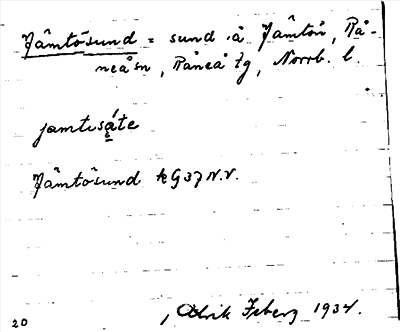 Jämtösund = sund i Jämtön, Rå-
neå sn, Råneå tg, Norrb. l.
jamtusáte
Jämtösund kG37N.V.
20
Ulrik 1934.